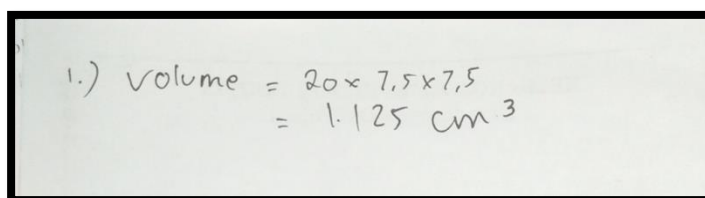 1.) volume = 20 x 7,5 x 7,5
= 1.125 cm³